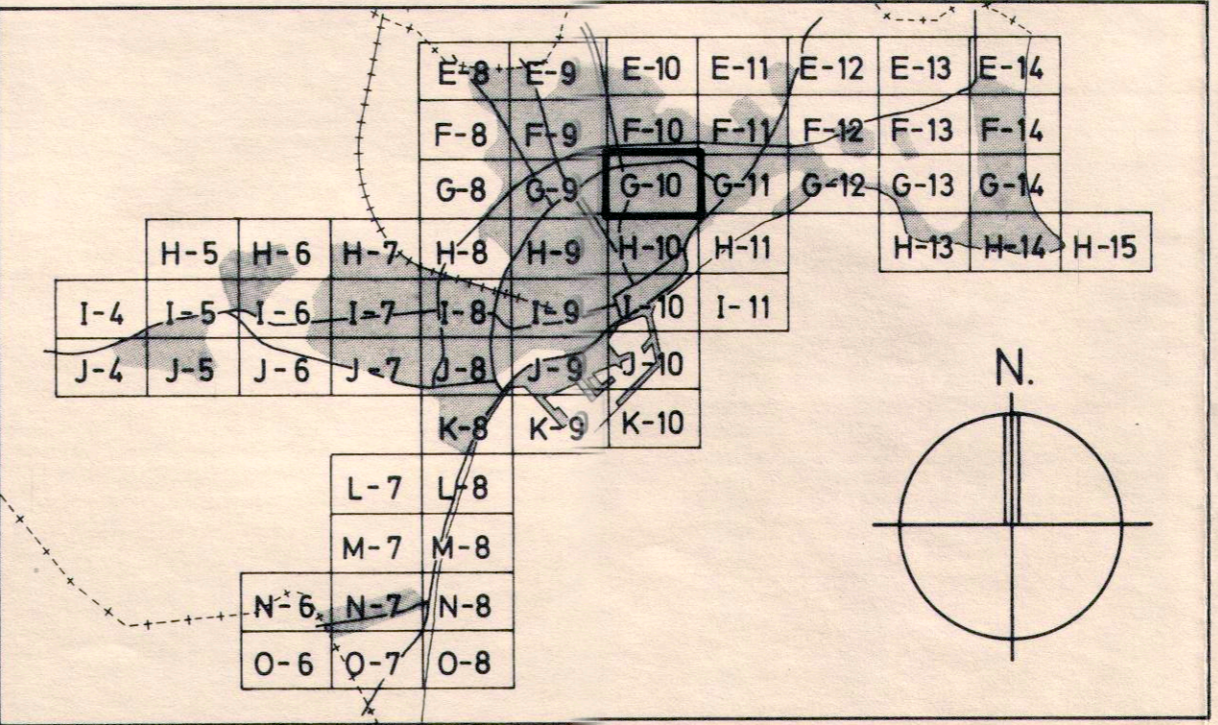 E-8 E-9 E-10 E-11 E-12 E-13 E-14
F-8 F-9 F-10 F-11 F-12 F-13 F-14
G-8 G-9 G-10 G-11 G-12 G-13 G-14
H-5 H-6 H-7 H-8 H-9 H-10 H-11 H-13 H-14 H-15
I-4 I-5 I-6 I-7 I-8 I-9 I-10 I-11
J-4 J-5 J-6 J-7 J-8 J-9 J-10
N.
K-8 K-9 K-10
L-7 L-8
M-7 M-8
N-6 N-7 N-8
O-6 O-7 O-8